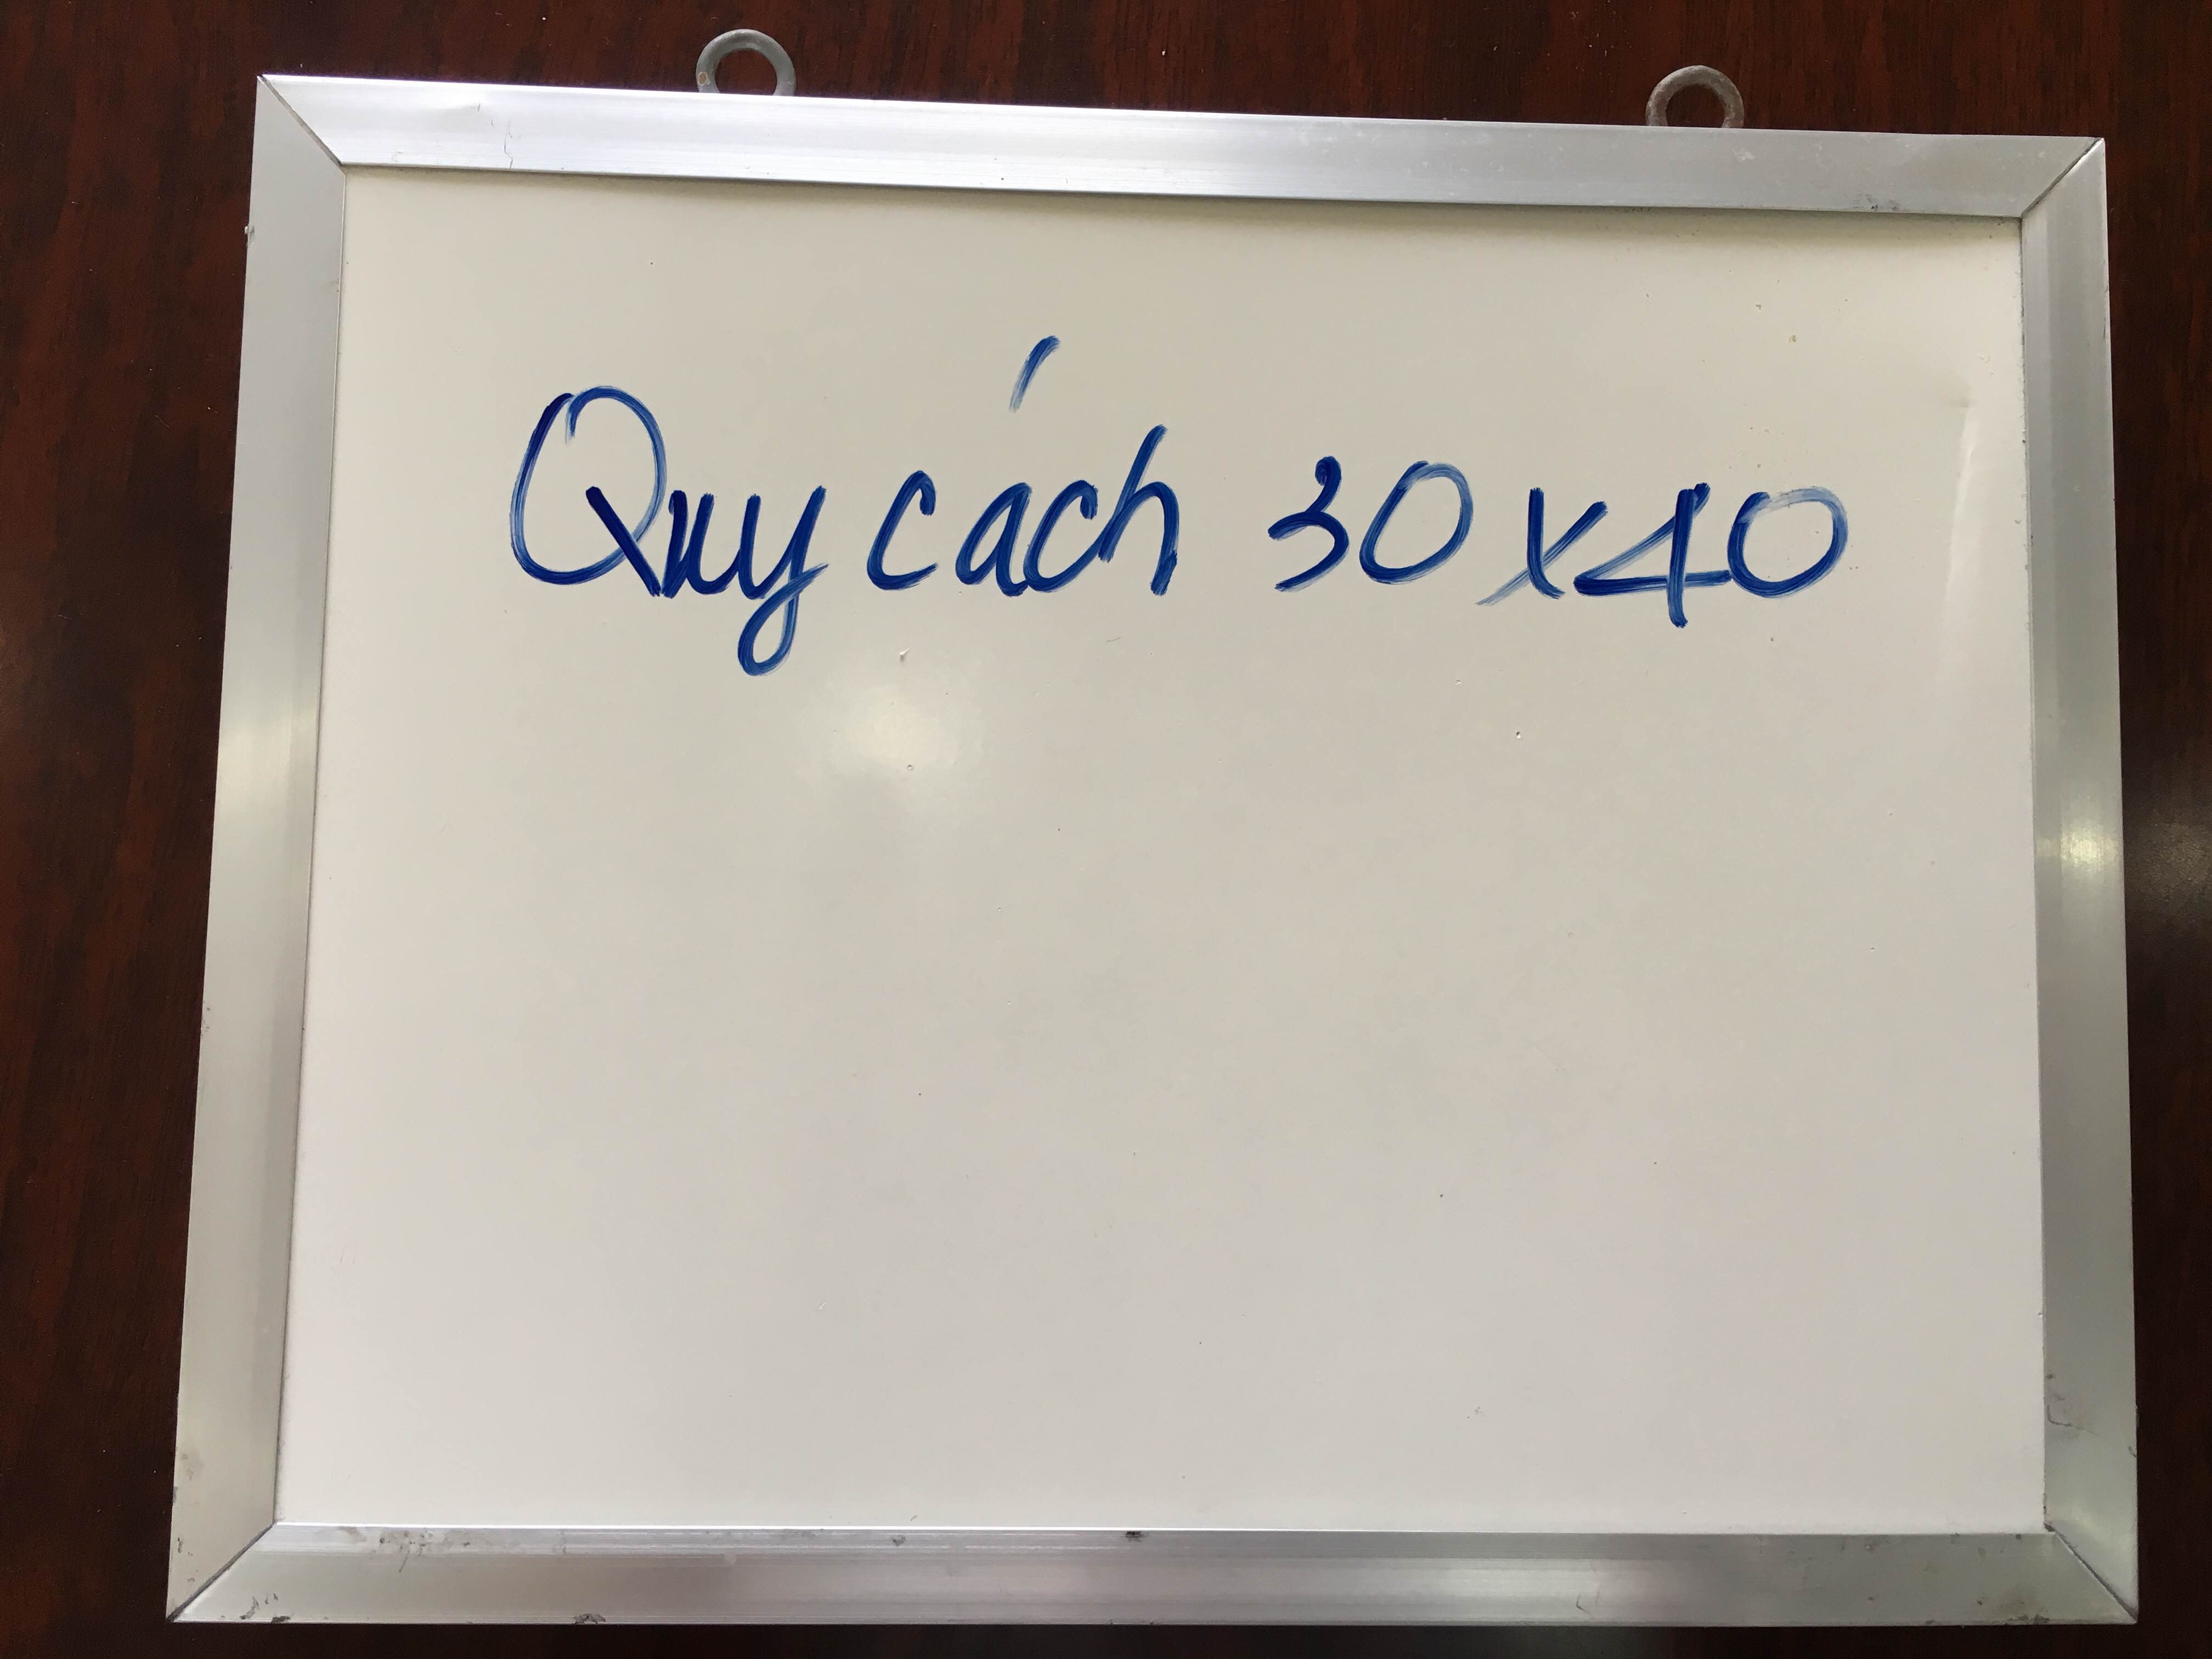 Quy cách 30x40